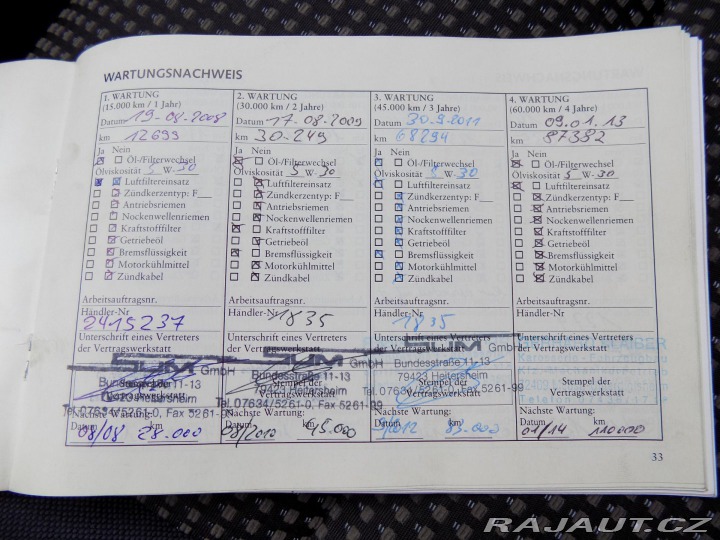 WARTUNGSNACHWEIS
1. WARTUNG
(15.000 km / 1 Jahr)
Datum 19-08-2008
km 12699
Ja Nein
Öl-/Filterwechsel
Ölviskosität 5 W-30
Luftfiltereinsatz
Zündkerzentyp: F
Antriebsriemen
Nockenwellenriemen
Kraftstofffilter
Getriebeöl
Bremsflüssigkeit
Motorkühlmittel
Zündkabel
Arbeitsauftragsnr.
Händler-Nr
2415237
Unterschrift eines Vertreters
der Vertragswerkstatt
GmbH
Bundesstraße 11-13
79423 Heitersheim
Tel. 07634/5261-0, Fax 5261-99
Nächste Wartung:
Datum km
08/08 28.000
2. WARTUNG
(30.000 km / 2 Jahre)
Datum 17.08.2009
km 30.249
Ja Nein
Öl-/Filterwechsel
Ölviskosität 5 W-30
Luftfiltereinsatz
Zündkerzentyp: F
Antriebsriemen
Nockenwellenriemen
Kraftstofffilter
Getriebeöl
Bremsflüssigkeit
Motorkühlmittel
Zündkabel
Arbeitsauftragsnr.
Händler-Nr 1835
Unterschrift eines Vertreters
der Vertragswerkstatt
SUM GmbH
Bundesstraße 11-13
79423 Heitersheim
Stempel der
Vertragswerkstatt
Tel. 07634/5261-0, Fax 5261-99
Nächste Wartung:
Datum km
08/2010 45.000
3. WARTUNG
(45.000 km / 3 Jahre)
Datum 30.9.2011
km 68294
Ja Nein
Öl-/Filterwechsel
Ölviskosität W-30
Luftfiltereinsatz
Zündkerzentyp: F
Antriebsriemen
Nockenwellenriemen
Kraftstofffilter
Getriebeöl
Bremsflüssigkeit
Motorkühlmittel
Zündkabel
Arbeitsauftragsnr.
Händler-Nr
1835
Unterschrift eines Vertreters
der Vertragswerkstatt
SUM GmbH
Bundesstraße 11-13
79423 Heitersheim
Stempel der
Vertragswerkstatt
Tel. 07634/5261-0, Fax 5261-99
Nächste Wartung:
Datum km
9/2012 83.000
4. WARTUNG
(60.000 km / 4 Jahre)
Datum 09.01.13
km 87382
Ja Nein
Öl-/Filterwechsel
Ölviskosität 5 W-30
Luftfiltereinsatz
Zündkerzentyp: F
Antriebsriemen
Nockenwellenriemen
Kraftstofffilter
Getriebeöl
Bremsflüssigkeit
Motorkühlmittel
Zündkabel
Arbeitsauftragsnr.
Händler-Nr
Unterschrift eines Vertreters
der Vertragswerkstatt
Stempel der
Vertragswerkstatt
Nächste Wartung:
Datum km
01/14 110000
33
RAJAUT.CZ